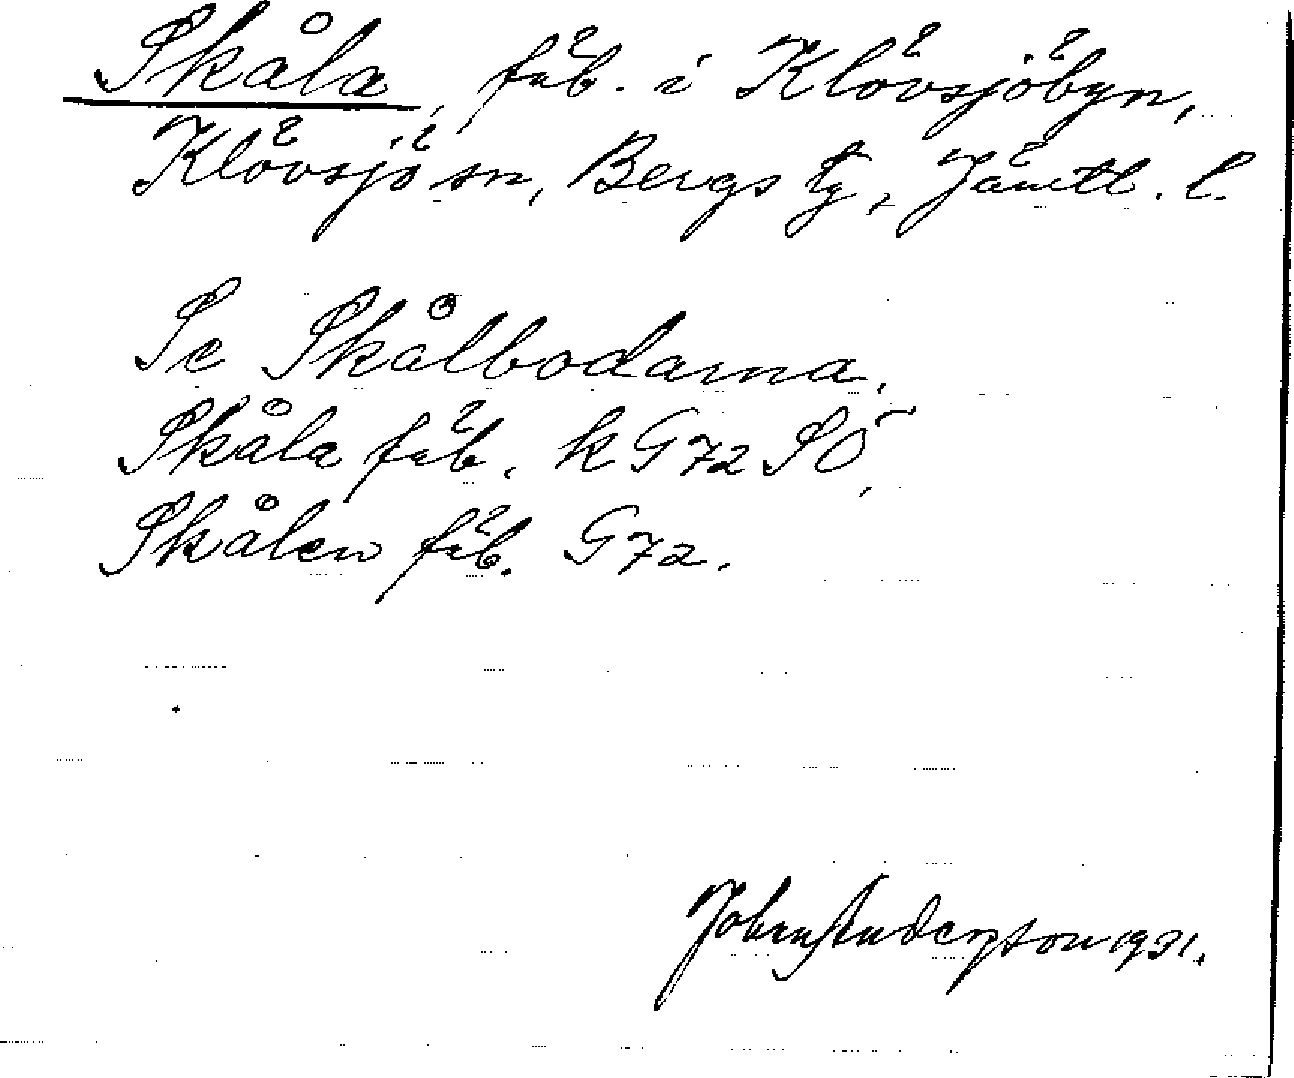 Skåla, fäb. i Klövsjöbyn,
Klövsjö sn, Bergs tg, Jämtl. l.
Se Skålbodarna.
Skåla fäb. k G72 SÖ,
Skålen fäb. G72.
Johan Anderzson 1931.